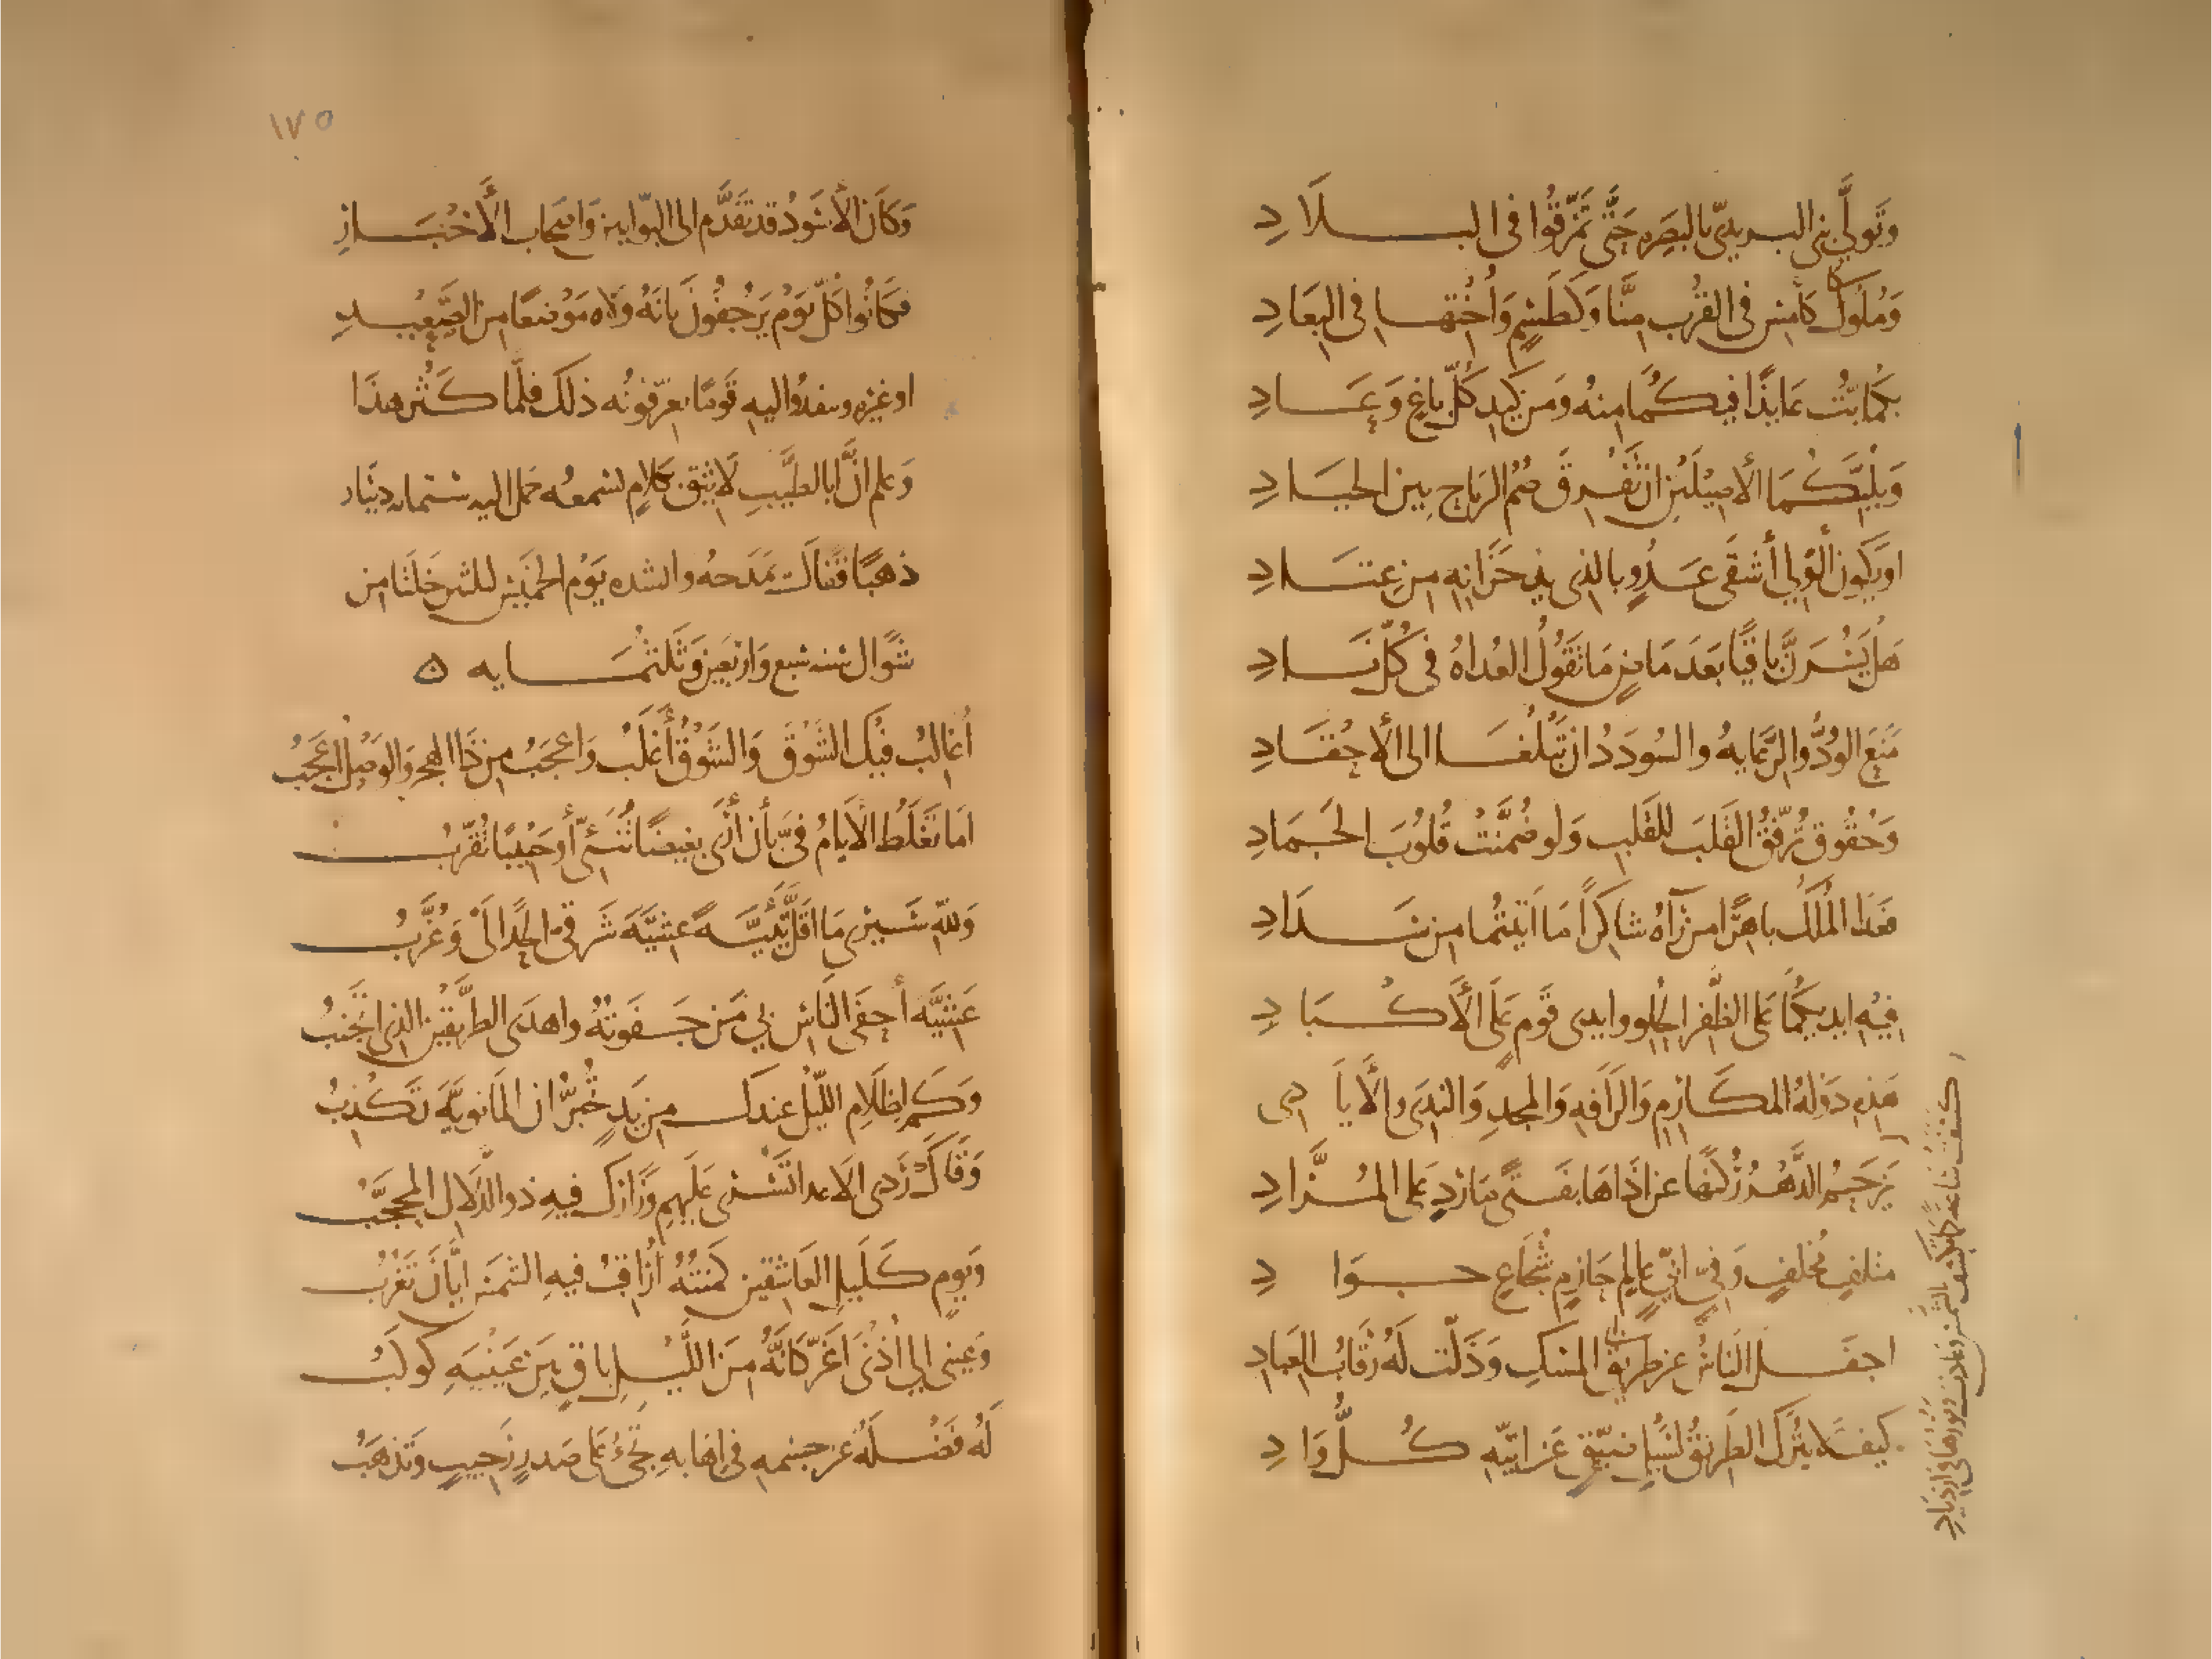 وَتَوَلِّي بَنِي البريديّ بالبَصرهِ حَتَّى تَمَزَّقُوا فى البلَادِ
وَمُلُوكًا كَأَمْسِ فى القُربِ مِنَّا وَكَطَسْمٍ وَأُخْتِها فى البِعَادِ
بِكُمَا بِتُّ عَايذًا فيكُمَا منهُ وَمن كَيدِ كلّ باغٍ وَعَادِ
وَبِلُبَّيكُمَا الأَصِيلَيْنِ ان تَفْرِقَ صُمُّ الرِماحِ بين الجيَادِ
او يَكونَ الوَلِي أَشقَى عَدُوٍّ بالذى يذخرَانِهِ مِن عتَادِ
هَل يَسُرَّنَّ باقيًا بَعدَ مَاضٍ مَا تقُولُ العُداهُ فى كُلّ نَادِ
مَنَعَ الوُدُّ والرِّعَايهُ والسُودَدُ ان تَبْلُغا الى الأَحقَادِ
وَحُقُوقٌ تُرَقِّقُ القَلبَ للقَلبِ وَلو ضُمِّنَتْ قُلُوبَ الجَمَادِ
فَغدا المُلكُ باهرًا من رَآهُ شاكرًا مَا اتَيتُما من سَدَادِ
فيهِ ايديكُمَا عَلى الظَّفَرِ الحُلوِ وايدى قَومٍ عَلَى الأَكبَادِ
هَذِهِ دَوْلهُ المكَارِمِ وَالرَأفهِ وَالمجدِ وَالنَدَى والأَيادِى
كَسَفَتْ سَاعَةً كَمَا تَكسِفُ الشَّمسُ وعَادَت وَنُورُهَا فى ازدِيَادِ
يَزحَمُ الدَّهْرَ رُكنُها عن اذَاهَا بفَتىً مَاردٍ عَلى المُرَّادِ
متلفٍ مُخلفٍ وَفيٍّ ابيٍّ عَالمٍ حَازمٍ شُجَاعٍ جوَادِ
اجفَل النَاسُ عن طريقِ ابى المسكِ وَذَلَّت لَهُ رقَابُ العبَادِ
كيفَ لا يُترَكُ الطَريقُ لسَيلٍ ضَيّقٍ عَن اتِيّهِ كُلُّ وَادِ
١٧٥
وَكَانَ الأَسْوَدُ قد تقَدَّمَ الى البوّابين وَاصحَاب الأَخبَارِ
فكَانُوا كُلّ يَوْمٍ يَرْجُفُونَ بانَهُ وَلاه مَوْضعًا من الصَّعِيدِ
او غيْرِهِ وينفذُوا اليهِ قَومًا يعرّفونُه ذلكَ فلمَّا كَثُرَ هذَا
وَعلم انَّ ابا الطيّبِ لَا يثق بكلامٍ يسمعُه حمل اليه ستمايه دينَار
ذهبًا فقالَ يَمدَحهُ وانشده يَوْم الخميس لليلتين خلَتا من
شوَّال سنه سَبع وَاربَعين وَثلثمَايه ه
أُغالبُ فيكَ الشَوْقَ وَالشَوْقُ أَغلَبُ وَاعجَبُ من ذَا الهجرِ وَالوَصْلُ اعجَبُ
امَا تغلَطُ الأَيامُ فىَّ بأن أَرَى بغيضًا تُنَئِى أَو حَبيبًا تُقَرّبُ
وَللهِ سَيْرى مَا اقَلَّ تَئِيَّةً عشيَّهَ شَرقىَّ الحَدَالَى وَغُرَّبُ
عَشيَّهَ أَحفَى النَاسِ بى مَن جَفَوتهُ واهدَى الطَريقَين الذى اتَجَنبُ
وَكَم لِظَلَامِ اللّيل عندكَ من يَدٍ تُخَبِّرُ ان المَانويَّهَ تَكذبُ
وَقَاكَ رَدَى الاعداءِ تَسْرى عَلَيهم وَزَارَكَ فيهِ ذو الدَّلَال المحجَّبُ
وَيَومٍ كَلَيلِ العَاشقين كَمَنتُهُ اُرَاقبُ فيهِ الشَمسَ ايّانَ تَغرُبُ
وَعَينى الى أُذنَى اَغَرَّ كَانَّهُ مِنَ اللَّيلِ باقٍ بَينَ عَينَيهِ كوكَبُ
لَهُ فَضْلَهٌ عن جسْمهِ فى اهابهِ تَجىءُ عَلى صَدرٍ رَحيبٍ وَتذهَبُ